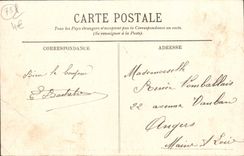 CARTE POSTALE
Tous les Pays étrangers n'acceptent pas la Correspondance au verso.
(Se renseigner à la Poste)
CORRESPONDANCE
ADRESSE
Bien le bonjour
Mademoiselle
22 avenue Vauban
Angers
Maine et Loire